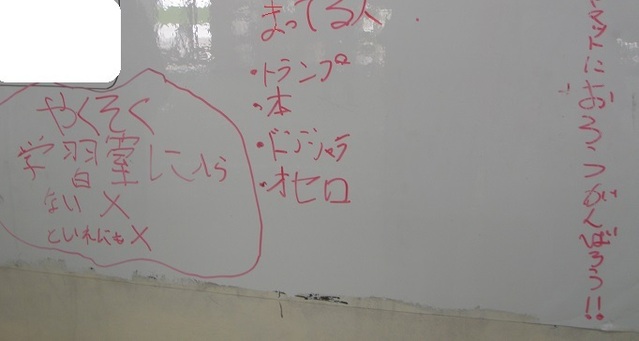 まってる人
・トランプ
・本
・ドンジャラ
・オセロ
やくそく
学習室に入ら
ない×
といれにも×
がんばろう!!